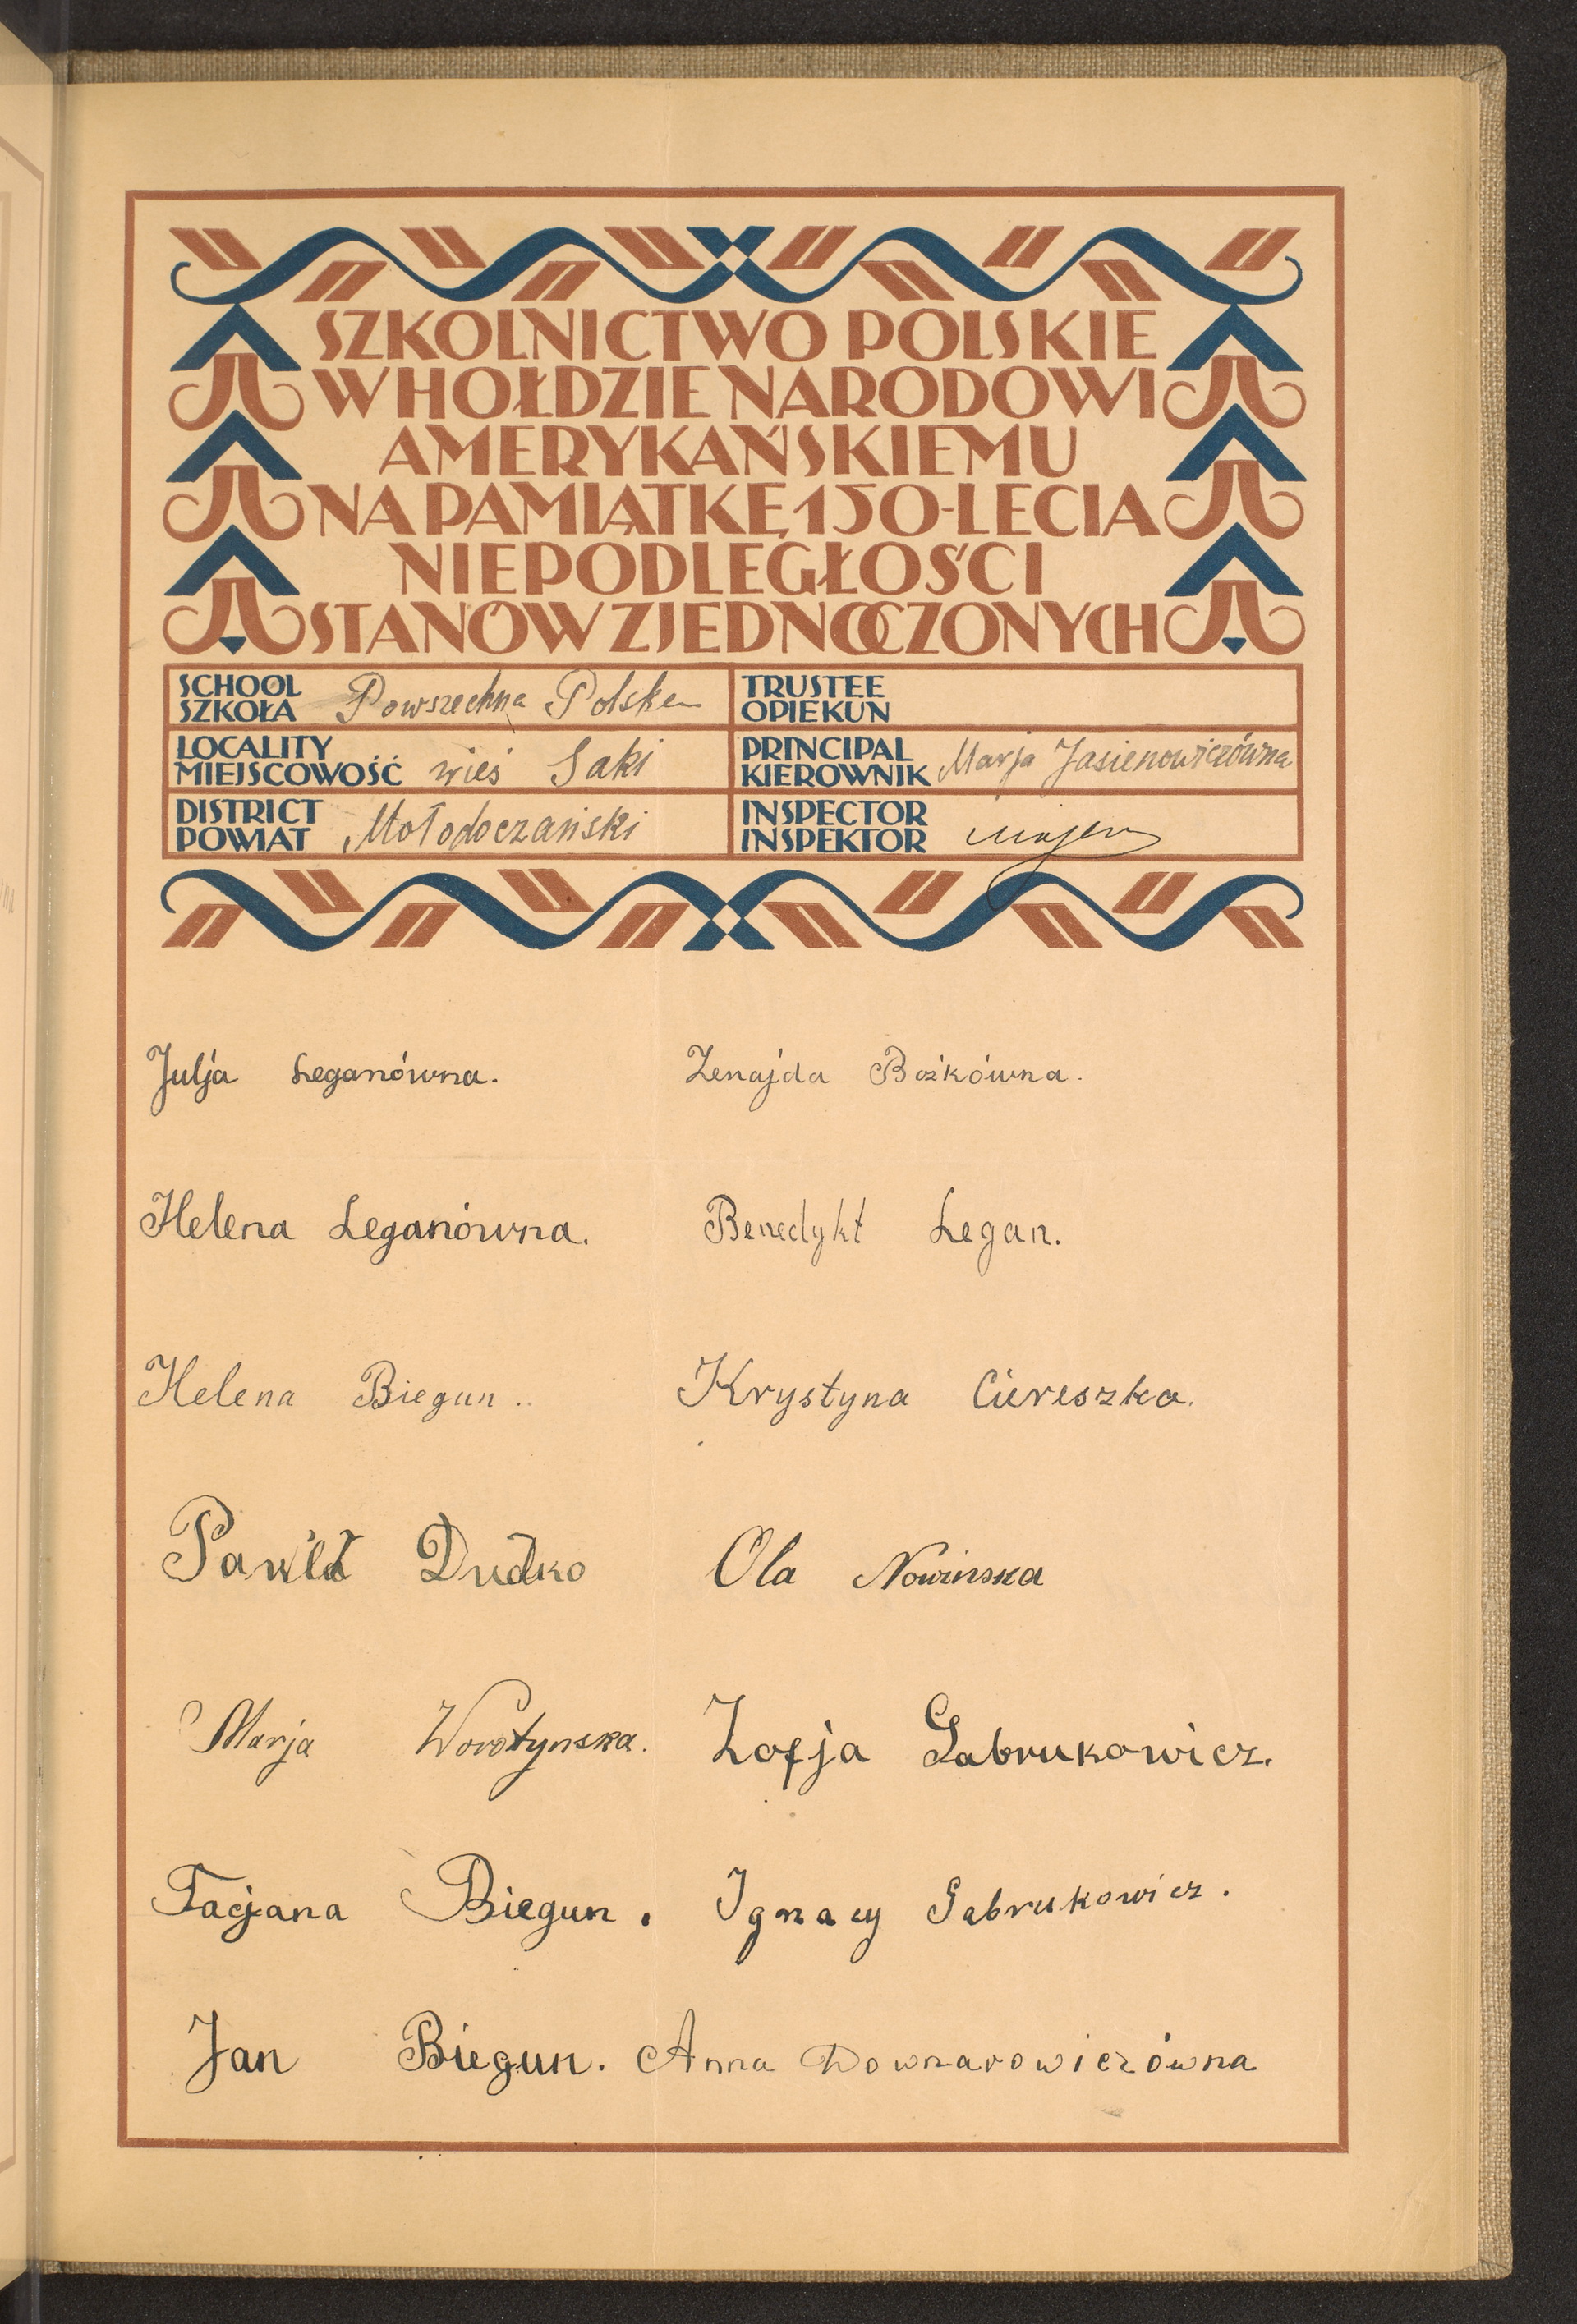 SZKOLNICTWO POLSKIE
W HOŁDZIE NARODOWI
AMERYKAŃSKIEMU
NA PAMIĄTKĘ 150-LECIA
NIEPODLEGŁOŚCI
STANÓW ZJEDNOCZONYCH
SCHOOL
SZKOŁA Powszechna Polska
TRUSTEE
OPIEKUN
LOCALITY
MIEJSCOWOŚĆ wieś Saki
PRINCIPAL
KIEROWNIK Marja Jasienowiczówna
DISTRICT
POWIAT Mołodoczański
INSPECTOR
INSPEKTOR
Julja Leganówna. Zenajda Bożkówna.
Helena Leganówna. Benedykt Legan.
Helena Biegun.. Krystyna Ciereszka.
Paweł Dudko Ola Nowinska
Marja Worotynska. Zofja Gabrukowicz.
Tacjana Biegun. Ignacy Gabrukowicz.
Jan Biegun. Anna Downarowiczówna